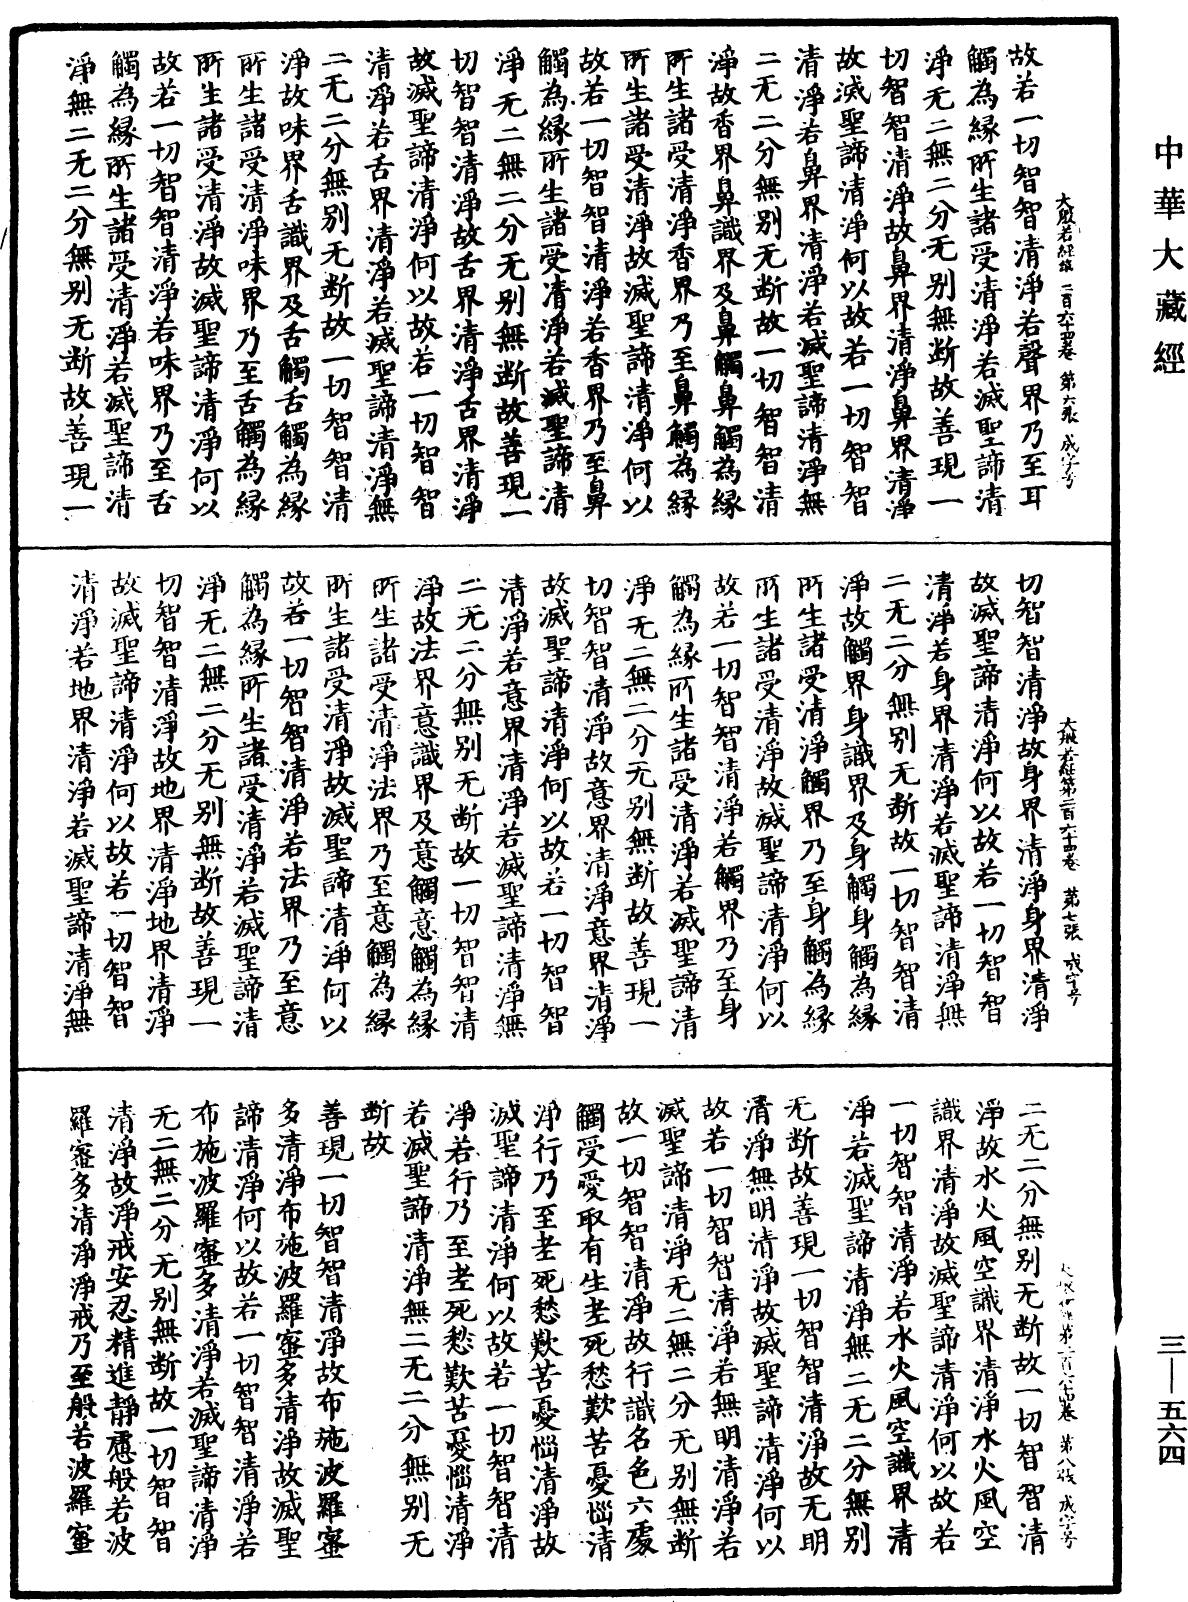 中華大藏經
大般若經第二百六十四卷 第六張 咸字号
故若一切智智清淨若聲界乃至耳
觸為緣所生諸受清淨若滅聖諦清
淨无二無二分无别無断故善現一
切智智清淨故鼻界清淨鼻界清淨
故滅聖諦清淨何以故若一切智智
清淨若鼻界清淨若滅聖諦清淨無
二无二分無别无断故一切智智清
淨故香界鼻識界及鼻觸鼻觸為緣
所生諸受清淨香界乃至鼻觸為緣
所生諸受清淨故滅聖諦清淨何以
故若一切智智清淨若香界乃至鼻
觸為緣所生諸受清淨若滅聖諦清
淨无二無二分无别無断故善現一
切智智清淨故舌界清淨舌界清淨
故滅聖諦清淨何以故若一切智智
清淨若舌界清淨若滅聖諦清淨無
二无二分無别无断故一切智智清
淨故味界舌識界及舌觸舌觸為緣
所生諸受清淨味界乃至舌觸為緣
所生諸受清淨故滅聖諦清淨何以
故若一切智智清淨若味界乃至舌
觸為緣所生諸受清淨若滅聖諦清
淨無二无二分無别无断故善現一
大般若經第二百六十四卷 第七張 咸字号
切智智清淨故身界清淨身界清淨
故滅聖諦清淨何以故若一切智智
清淨若身界清淨若滅聖諦清淨無
二无二分無别无断故一切智智清
淨故觸界身識界及身觸身觸為緣
所生諸受清淨觸界乃至身觸為緣
所生諸受清淨故滅聖諦清淨何以
故若一切智智清淨若觸界乃至身
觸為緣所生諸受清淨若滅聖諦清
淨无二無二分无别無断故善現一
切智智清淨故意界清淨意界清淨
故滅聖諦清淨何以故若一切智智
清淨若意界清淨若滅聖諦清淨無
二无二分無别无断故一切智智清
淨故法界意識界及意觸意觸為緣
所生諸受清淨法界乃至意觸為緣
所生諸受清淨故滅聖諦清淨何以
故若一切智智清淨若法界乃至意
觸為緣所生諸受清淨若滅聖諦清
淨无二無二分无别無断故善現一
切智智清淨故地界清淨地界清淨
故滅聖諦清淨何以故若一切智智
清淨若地界清淨若滅聖諦清淨無
大般若經第二百六十四卷 第八張 咸字号
二无二分無别无断故一切智智清
淨故水火風空識界清淨水火風空
識界清淨故滅聖諦清淨何以故若
一切智智清淨若水火風空識界清
淨若滅聖諦清淨無二无二分無别
无断故善現一切智智清淨故无明
清淨無明清淨故滅聖諦清淨何以
故若一切智智清淨若無明清淨若
滅聖諦清淨无二無二分无别無断
故一切智智清淨故行識名色六處
觸受愛取有生老死愁歎苦憂惱清
淨行乃至老死愁歎苦憂惱清淨故
滅聖諦清淨何以故若一切智智清
淨若行乃至老死愁歎苦憂惱清淨
若滅聖諦清淨無二无二分無别无
断故
善現一切智智清淨故布施波羅蜜
多清淨布施波羅蜜多清淨故滅聖
諦清淨何以故若一切智智清淨若
布施波羅蜜多清淨若滅聖諦清淨
无二無二分无别無断故一切智智
清淨故淨戒安忍精進靜慮般若波
羅蜜多清淨淨戒乃至般若波羅蜜
三—五六四